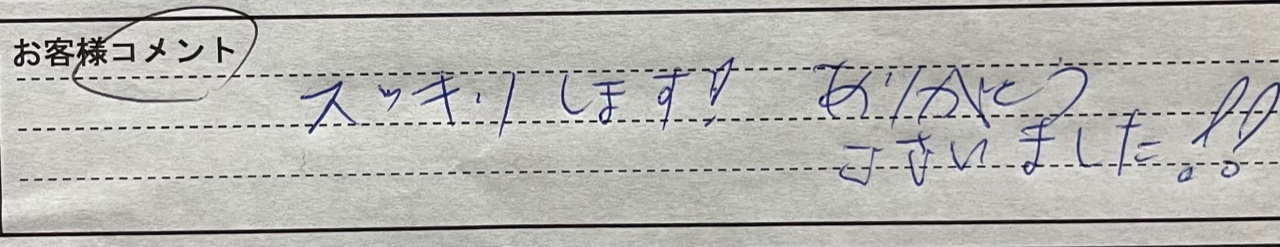 お客様コメント
スッキリします! ありがとう
ございました!!